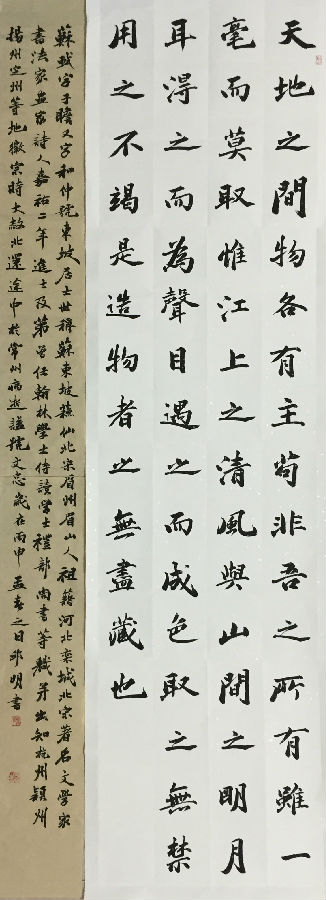 天地之間物各有主苟非吾之所有雖一
毫而莫取惟江上之清風與山間之明月
耳得之而為聲目遇之而成色取之無禁
用之不竭是造物者之無盡藏也
蘇軾字子瞻又字和仲號東坡居士世稱蘇東坡蘇仙北宋眉州眉山人祖籍河北欒城北宋著名文學家
書法家畫家詩人嘉祐二年進士及第曾任翰林學士侍讀學士禮部尚書等職并出知杭州潁州
揚州定州等地徽宗時大赦北還途中於常州病逝謚號文忠歲在丙申孟春之日非明書